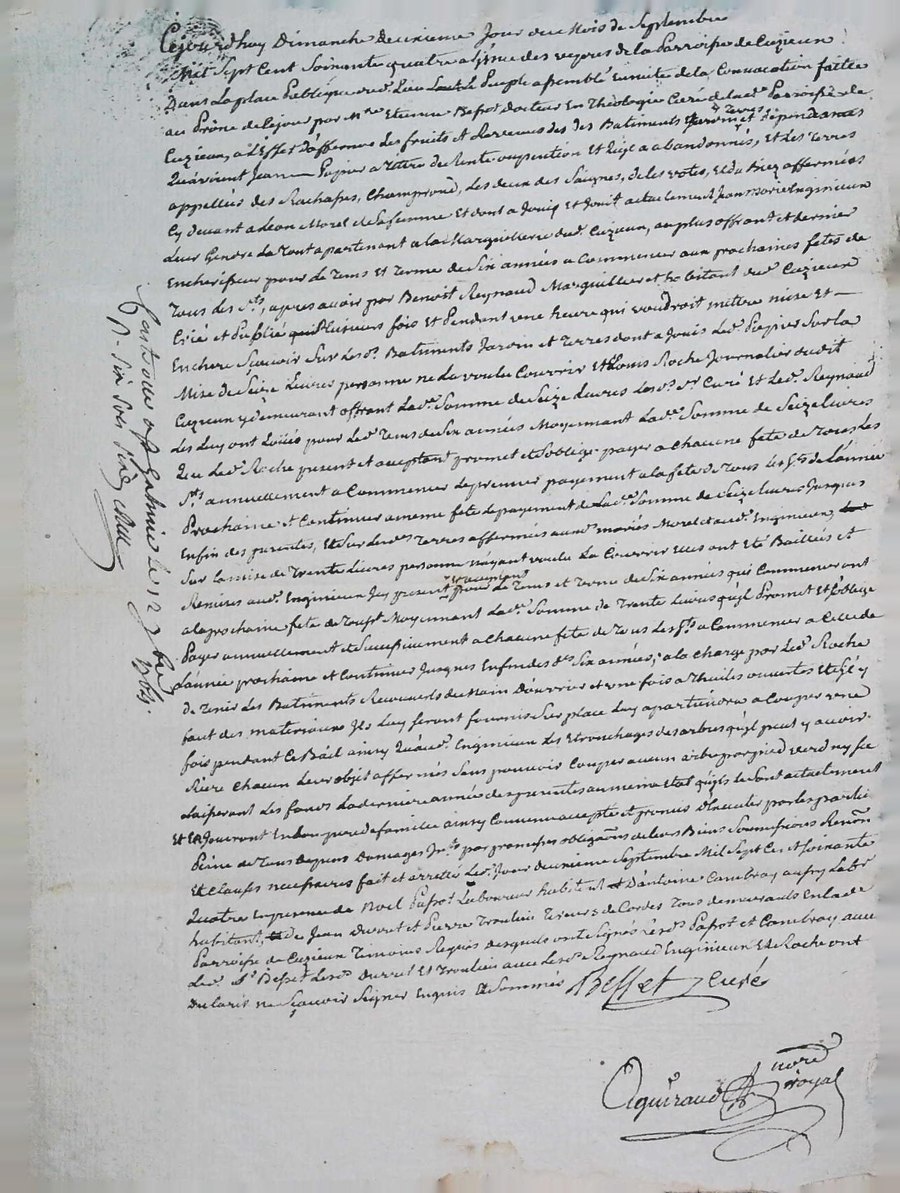 Cejourdhuy Dimanche deuxieme Jour du Mois de Septembre
Mil Sept Cent Soixante quatre a l'issue des vepres de la Parroisse de Cuzieux
Dans la place Publique dud. Lieu tout le Peuple assemblé ensuite de la Convocation faitte
au Prône de Cejour par Mre Etienne Besset Docteur En Théologie Curé de lad. Parroisse de
Cuzieux, a L'Effet D'affermer les fruits et Revenus des Batiments Jardin et terres et dépendances
Jean Papier a titre de Rente ou pention Et quil a abandonnés, Et Les Terres
appellées des Rachasses, Champrond, Les deux des Saignes, de les votes, Et du Briez affermées
Cy devant a Leon Morel et Safemme Et dont a Jouiq Et Jouit actuellement Jean Marie Enginieux
Leur Gendre Le Tout apartenant a la Marguillerie dud. Cuzieux, au plus offrant et dernier
Encherisseur pour Le Tems Et Terme de Six années a Commencer aux prochaines fetes de
Tous Les Sts, apres avoir par Benoit Reynaud Marguillier et habitant dud. Cuzieux
Crié et Publié Plusieurs fois Et Pendant une heure qui voudroit mettre mise Et
Enchere Scavoir Sur Lesd. Batiments Jardin et Terres dont a Jouis Led. Papier Sur la
Mise de Seize Livres personne ne La voulu Couvrir Et Louis Roche Journalier dudit
Cuzieux y demeurant offrant Lad. Somme de Seize Livres Lesd. Sr Curé Et Led. Reynaud
Les Luy ont Loüés pour Led. Tems de Six années Moyennant Lad. Somme de Seize Livres
Que Led. Roche present et acceptant promet et S'oblige payer a Chacune fete de Tous Les
Sts annuellement a Commencer Le premier payement a la fete de Tous Les Sts de L'année
Prochaine et Continuer a meme fete Le payement de Lad. Somme de Seize Livres Jusques
Enfin des presentes, Et Sur Lesd. Terres affermées auxd. mariés Morel et aud. Enginieux,
Sur la mise de Trente Livres personne n'ayant voulu La Couvrir Elles ont Eté Baillées et
Remises aud. Enginieux Icy present pour Le Tems et Terme de Six années qui Commenceront
a la prochaine fete de Toussts Moyennant Lad. Somme de Trente Livres qu'il Promet Et S'oblige
Payer annuellement et Successivement a Chacune fete de Tous Les Sts a Commencer a Celle de
L'année prochaine et Continuer Jusques Enfin des d. Six années, a la Charge par Led. Roche
de Tenir Les Batiments Recouverts de Main D'ouvrier et une fois a Thuiles ouvertes Et S'il y
faut des materiaux Ils Luy seront fournis Sur place Luy apartiendra a Couper une
fois pendant Ce Bail ainsy qu'aud. Enginieux Les Etronchages des arbres qu'il peut y avoir
Riere Chacun Leur objet affermés Sans pouvoir Couper aucun arbre par pied verd ny sec
Laisseront Les fonds La derniere année des presentes au meme Etat qu'ils Le Sont actuellement
Et En Jouiront En bon pere de famille ainsy Convenu accepté et promis D'executer par les parties
Peine de Tous depens Domages Jnts par promesses obligaons de Leurs Biens Soumissions Renon
Et Clauses necessaires fait et arretté Led. Jour deuxieme Septembre Mil Sept Cent Soixante
Quatre En presence de Noel Laboureur habitant D'antoine Cambray Labr
habitant, De Jean Durret et Pierre Trouliei Tireurs de Cordes Tous demeurants En lad.
Parroisse de Cuzieux Temoins Requis desquels ont Signés
Led. Sr Besset Lesd. Durret Et Trouliei avec Lesd. Reynaud Enginieux Et Roche ont
Declaré ne Sçavoir Signer Enquis Et Sommés Besset curé
Aguiraud nore royal
Controllé a St Galmier le 12 7bre 1764.
R. Six Sols Six d.